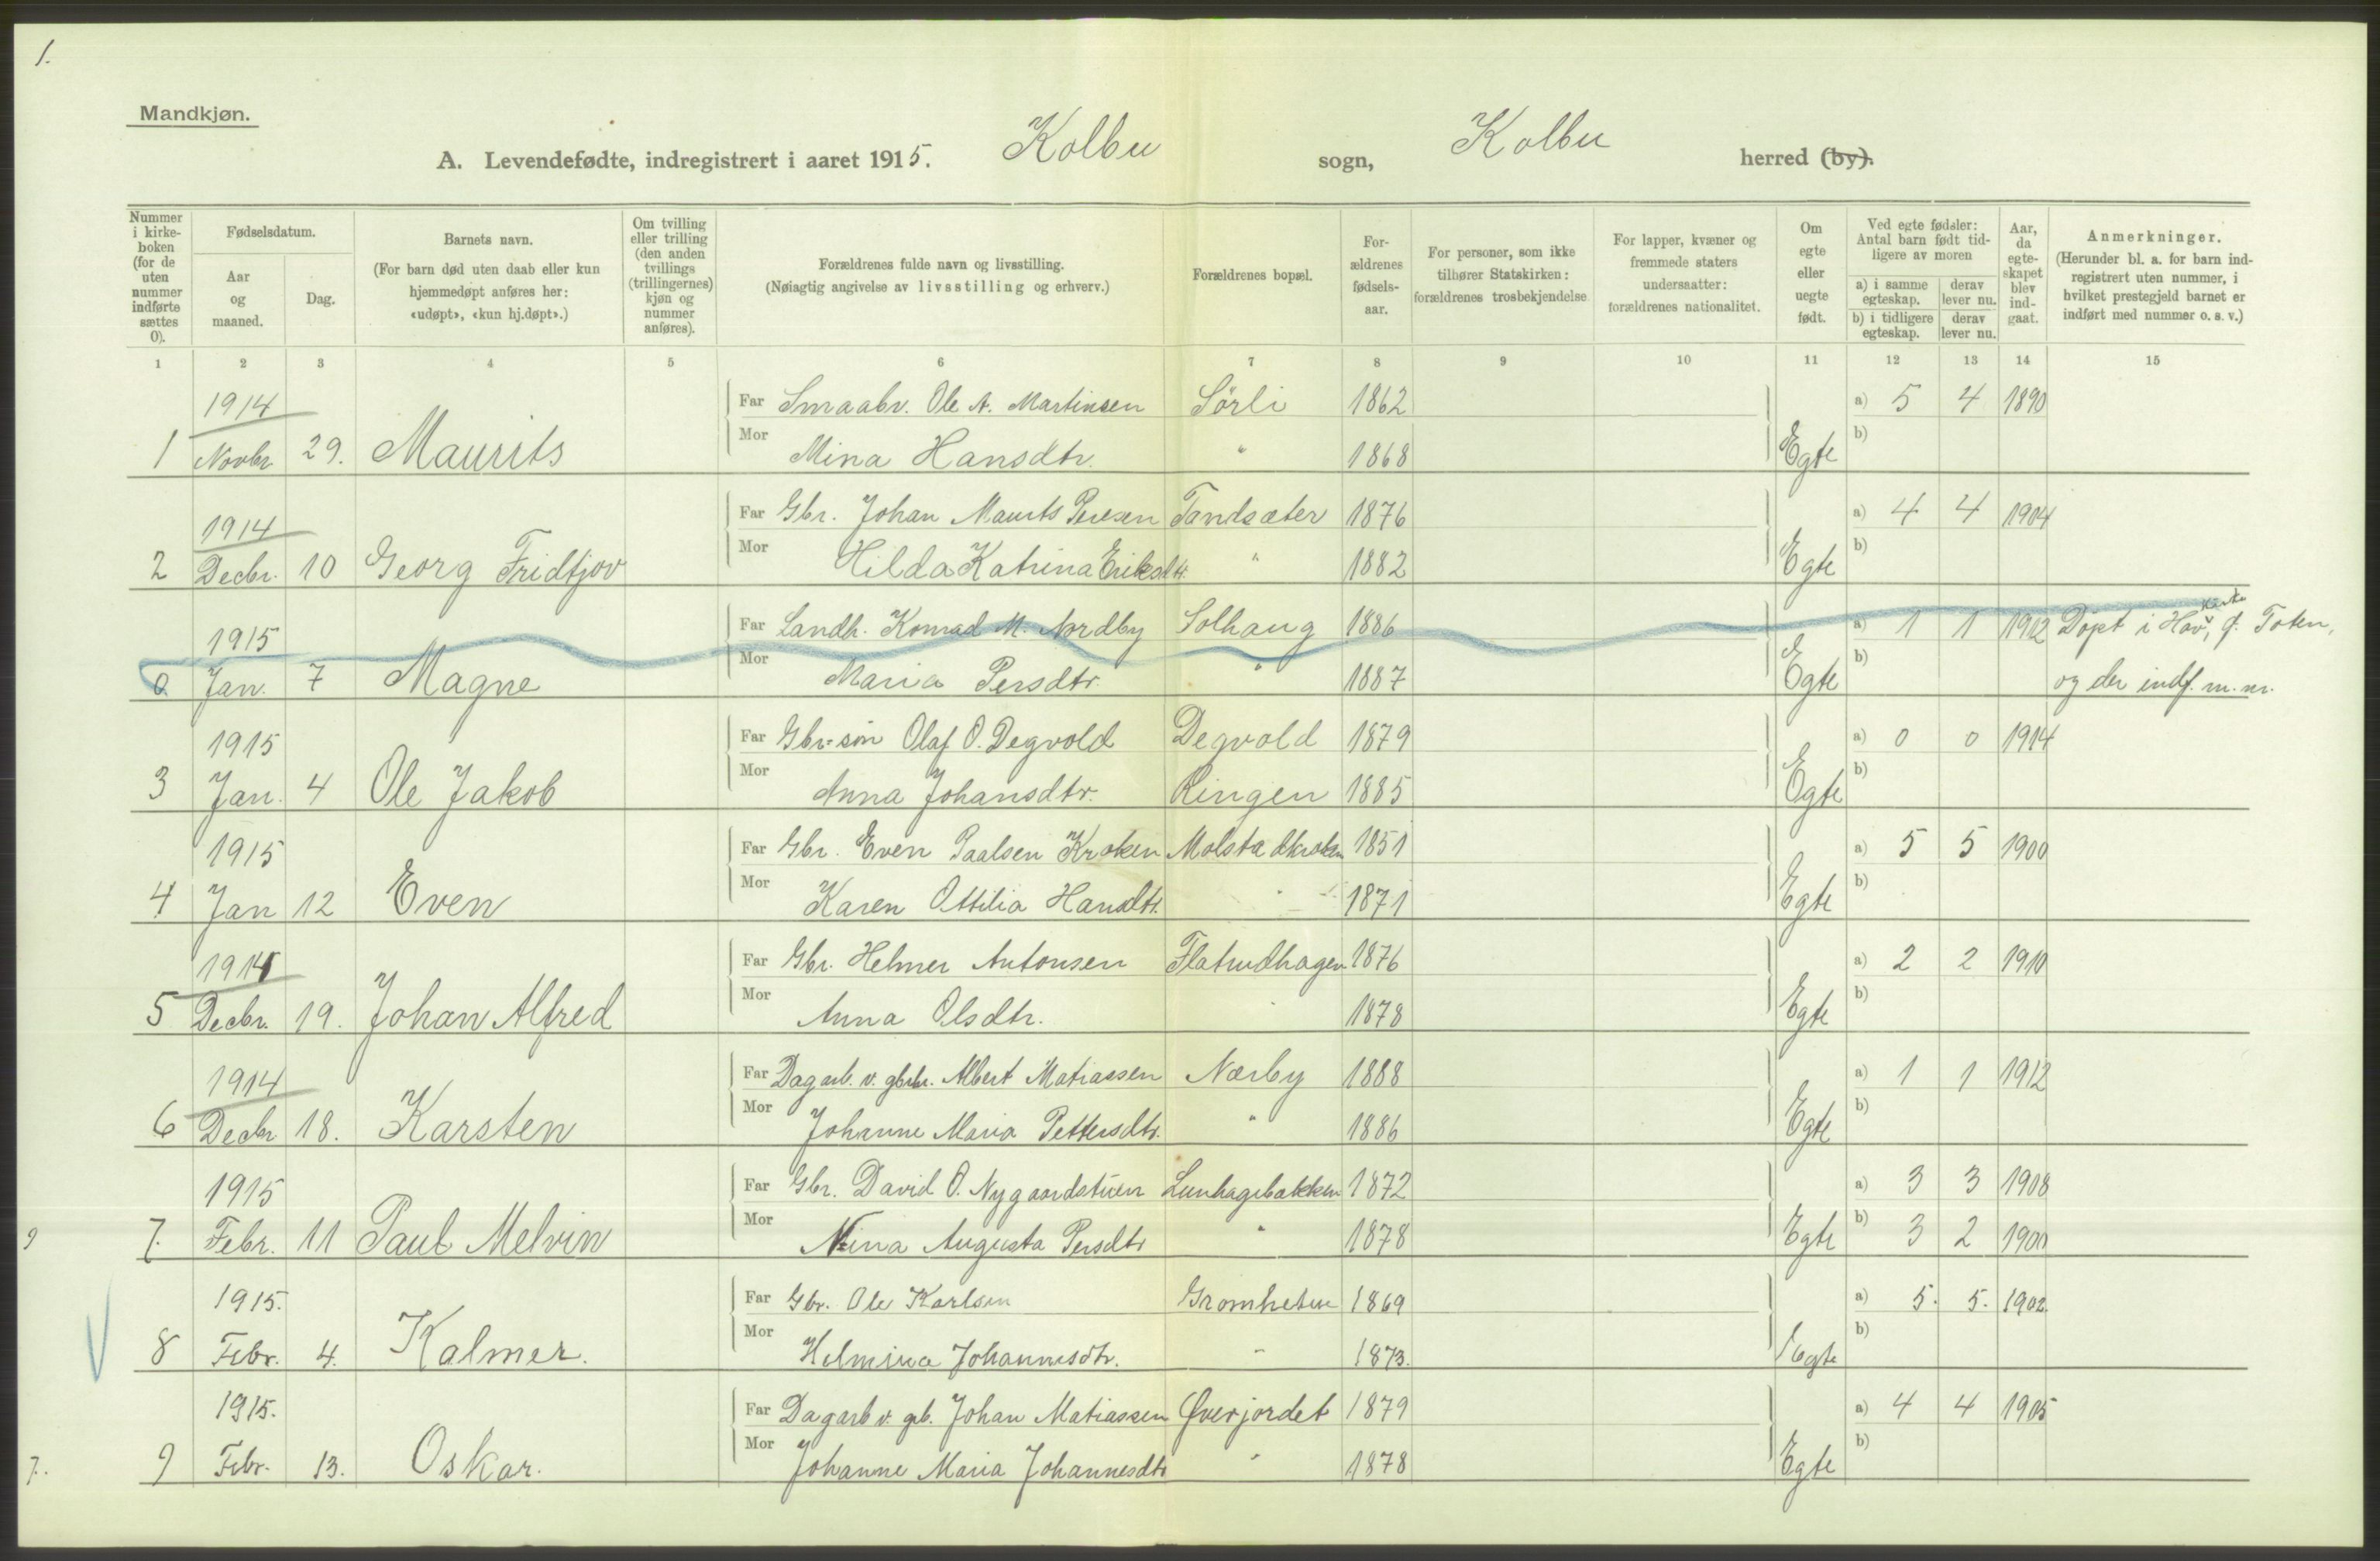 1.
Mandkjøn.
A. Levendefødte, indregistrert i aaret 1915. Kolbu sogn, Kolbu herred (by).
Nummer i kirke-boken (for de uten nummer indførte sættes 0).
Fødselsdatum.
Aar og maaned.
Dag.
Barnets navn.
(For barn død uten daab eller kun hjemmedøpt anføres her: «udøpt», «kun hj.døpt».)
Om tvilling eller trilling (den anden tvillings (trillingernes) kjøn og nummer anføres).
Forældrenes fulde navn og livsstilling.
(Nøiagtig angivelse av livsstilling og erhverv.)
Forældrenes bopæl.
For-ældrenes fødsels-aar.
For personer, som ikke tilhører Statskirken: forældrenes trosbekjendelse.
For lapper, kvæner og fremmede staters undersaatter: forældrenes nationalitet.
Om egte eller uegte født.
Ved egte fødsler: Antal barn født tid-ligere av moren
a) i samme egteskap.
derav lever nu.
b) i tidligere egteskap.
derav lever nu.
Aar, da egte-skapet blev ind-gaat.
Anmerkninger.
(Herunder bl. a. for barn ind-registrert uten nummer, i hvilket prestegjeld barnet er indført med nummer o. s. v.)
1 2 3 4 5 6 7 8 9 10 11 12 13 14 15
1914 Far Smaabr. Ole A. Martinsen Sörli 1862 a) 5 4 1890
1 Novbr. 29. Maurits Mor Mina Hansdtr. " 1868 Egte b)
1914 Far Gbr. Johan Maurits Persen Tandsæter 1876 a) 4 4 1904
2 Decbr. 10 Georg Fridtjov Mor Hilda Katrina Eriksdtr. " 1882 Egte b)
1915 Far Landh. Konrad M. Nordby Solhaug 1886 a) 1 1 1912 Döpt i Hov kirke, Ø. Toten,
0 Jan. 7 Magne Mor Maria Persdtr. " 1887 Egte b) og der indf. m. nr.
1915 Far Gbr-sön Olaf O. Degvold Degvold 1879 a) 0 0 1914
3 Jan. 4 Ole Jakob Mor Anna Johansdtr. Ringen 1885 Egte b)
1915 Far Gbr. Even Paalsen Kroken Molstadkroken 1851 a) 5 5 1900
4 Jan 12 Even Mor Karen Ottilia Hansdtr. " 1871 Egte b)
1914 Far Gbr. Helmer Antonsen Flatrudhagen 1876 a) 2 2 1910
5 Decbr. 19. Johan Alfred Mor Anna Olsdtr. " 1878 Egte b)
1914 Far Dagarb. v. gbrbr. Albert Matiassen Nærby 1888 a) 1 1 1912
6 Decbr 18. Karsten Mor Johanne Maria Pettersdtr. " 1886 Egte b)
1915 Far Gbr. David O. Nygaardstuen Lunhagebakken 1872 a) 3 3 1908
9 7. Febr. 11 Paul Melvin Mor Nina Augusta Persdtr " 1878 Egte b) 3 2 1900
1915. Far Gbr. Ole Karlsen Gromheten 1869 a) 5. 5. 1902.
8 Febr. 4. Kalmer. Mor Helmina Johannesdtr. " 1873. Egte b)
1915. Far Dagarb v. grb. Johan Matiassen Øverjordet 1879 a) 4 4 1905
7. 9 Febr. 13. Oskar. Mor Johanne Maria Johannesdtr " 1878 Egte b)